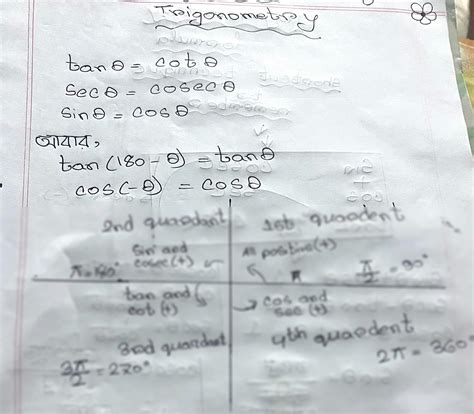 Trigonometry
tanθ = cotθ
secθ = cosecθ
sinθ = cosθ
আবার,
tan(180-θ) = tanθ
cos(-θ) = cosθ
2nd quaedant
1st quaodent
Sin and
cosec (+)
All positive (+)
π = 180°
π/2 = 90°
tan and
cot (+)
cos and
sec (+)
3rd quardnet
4th quaedent
3π/2 = 270°
2π = 360°